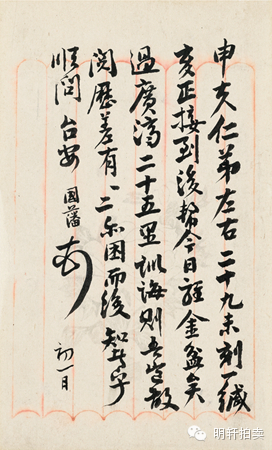 申夫仁弟左右二十九未刻一緘
亥正接到後幫今日經金盆矣
過廣濟二十五里訓誨則吾豈敢
閱歷差有一二亦困而後知者乎
順問台安 國藩
初一日
明轩拍卖